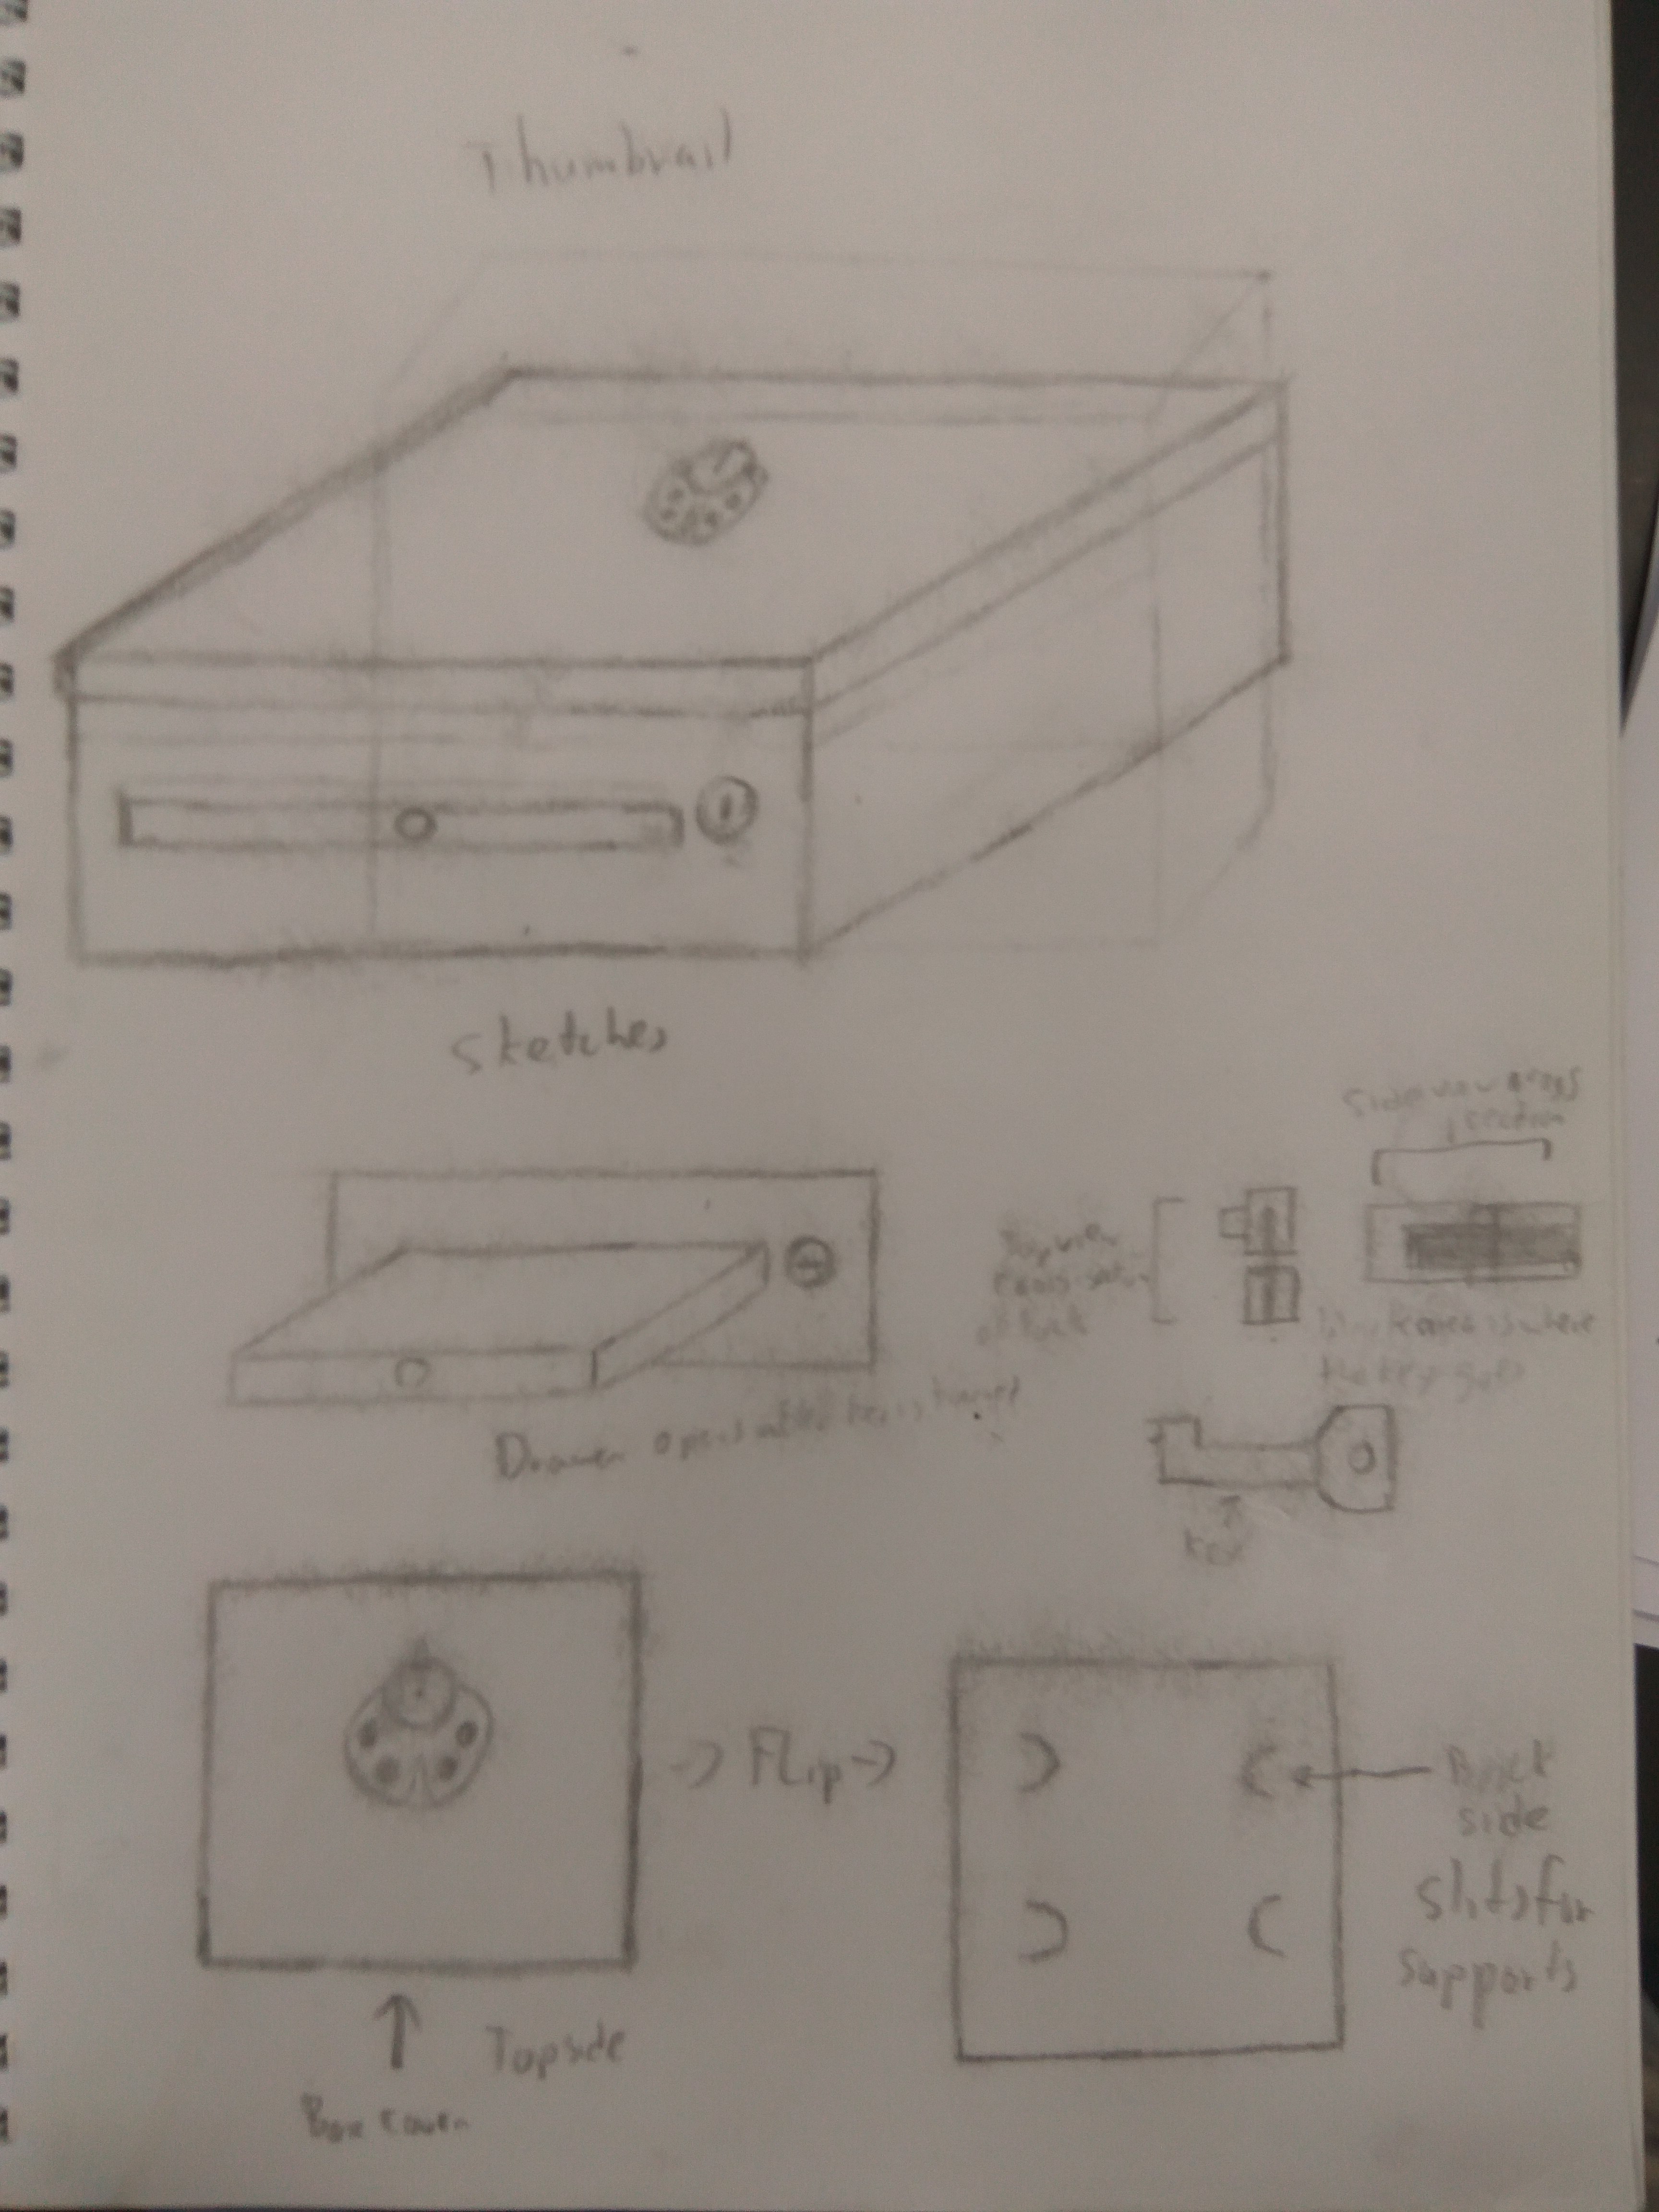 Thumbnail
Sketches
Side view cross
section
Top view
cross-section
of lock
is where
the key goes
Drawer opens after key is turned
Key
-> Flip ->
Back
side
slits for
supports
Topside
Box cover